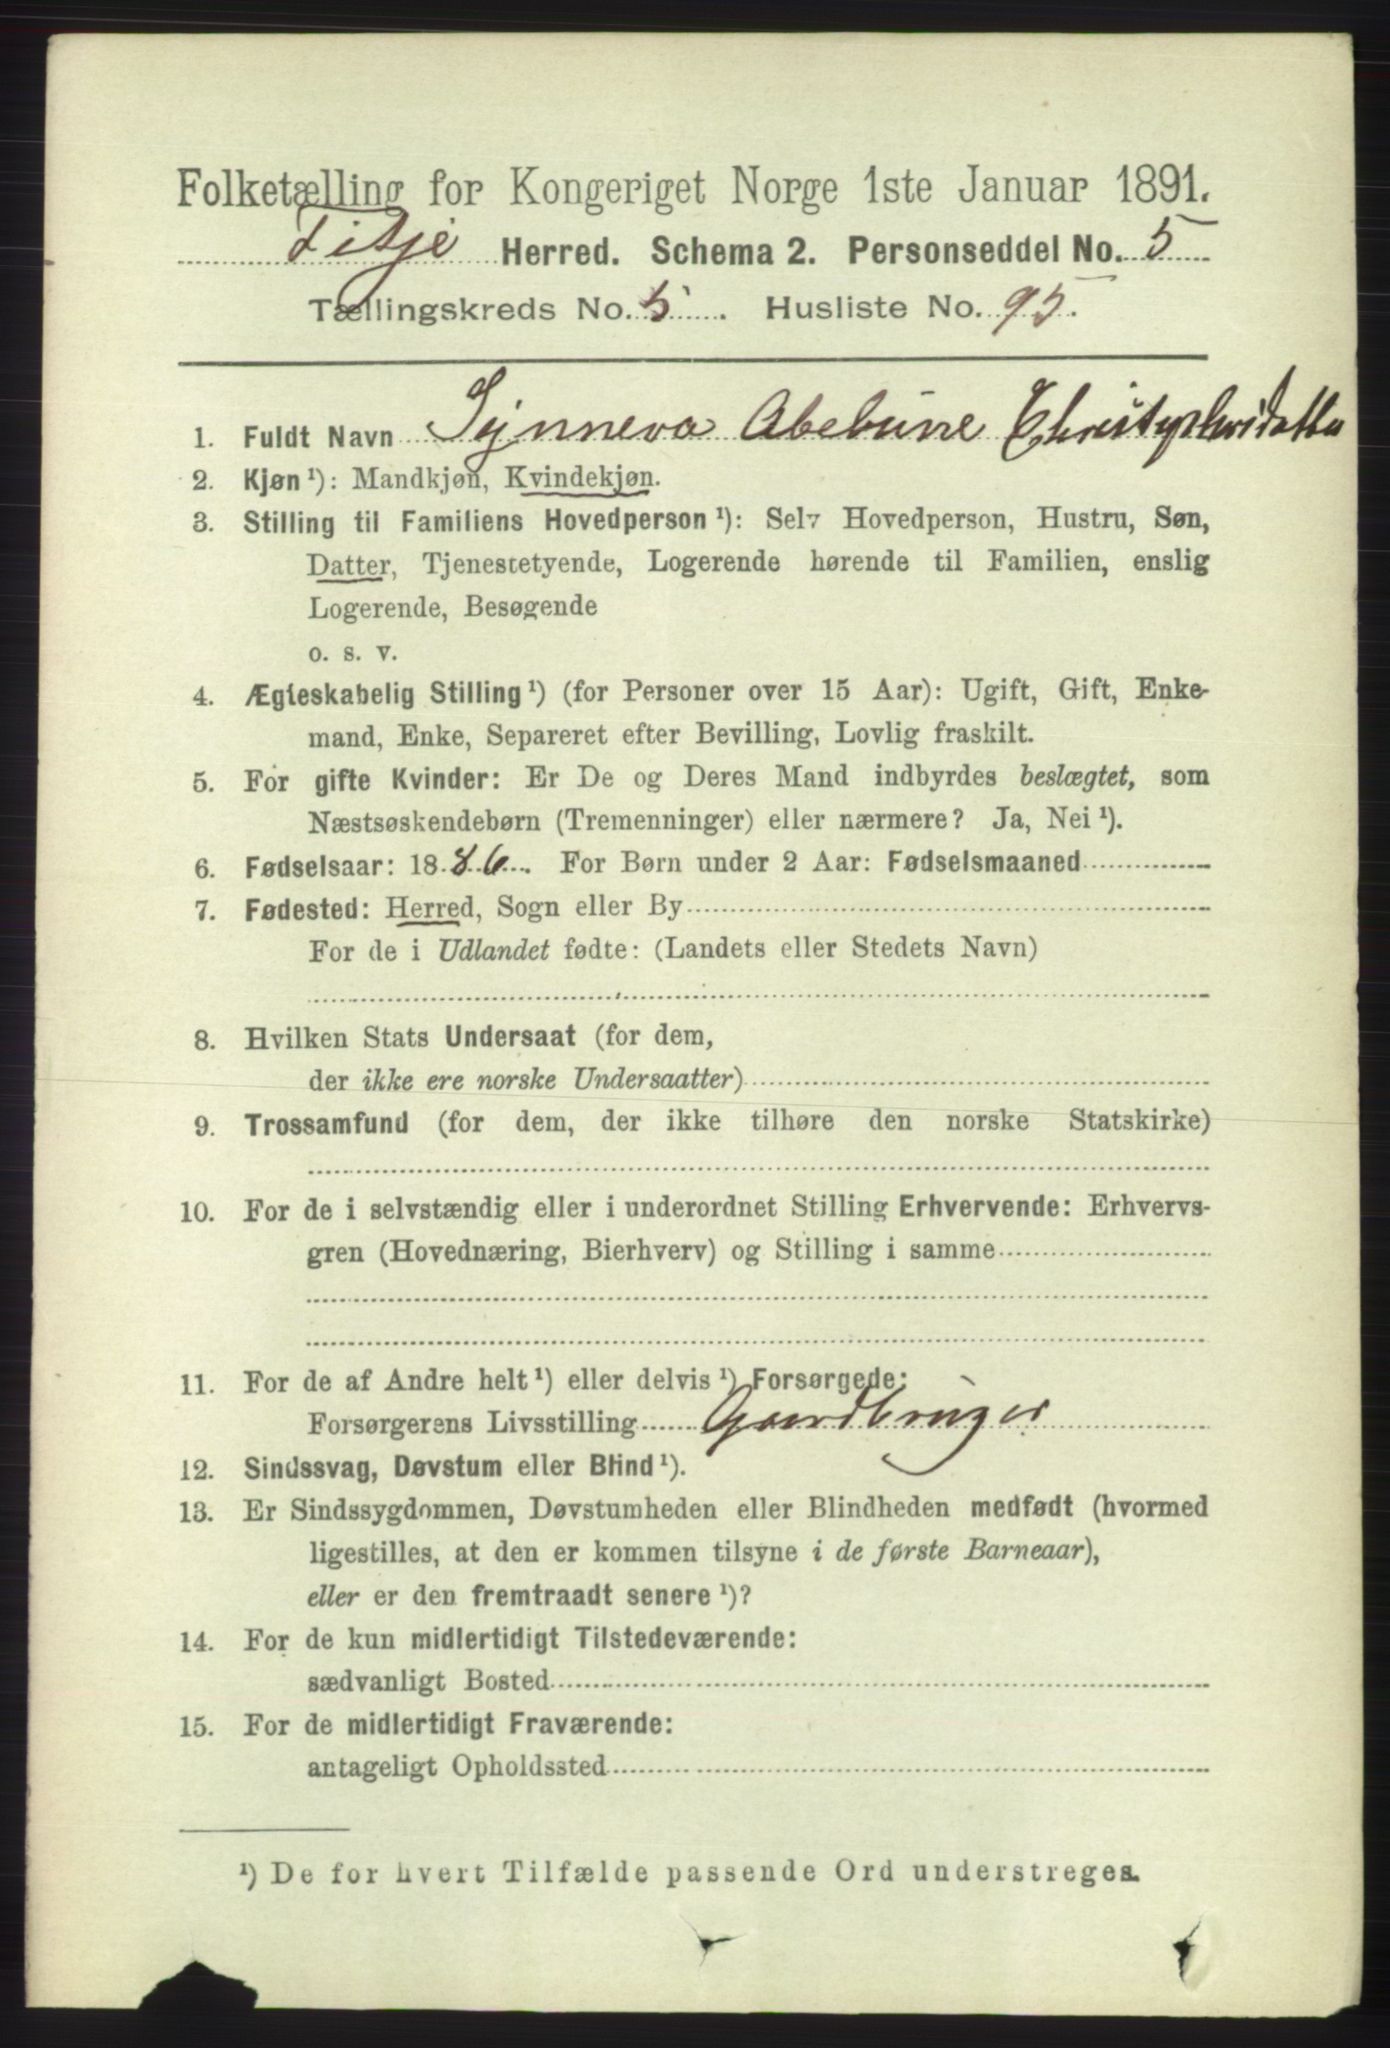 Folketælling for Kongeriget Norge 1ste Januar 1891.
Fitje Herred. Schema 2. Personseddel No. 5
Tællingskreds No. 5. Husliste No. 95.
1. Fuldt Navn Synneva
2. Kjøn ¹): Mandkjøn, Kvindekjøn.
3. Stilling til Familiens Hovedperson ¹): Selv Hovedperson, Hustru, Søn,
Datter, Tjenestetyende, Logerende hørende til Familien, enslig
Logerende, Besøgende
o. s. v.
4. Ægteskabelig Stilling ¹) (for Personer over 15 Aar): Ugift, Gift, Enke-
mand, Enke, Separeret efter Bevilling, Lovlig fraskilt.
5. For gifte Kvinder: Er De og Deres Mand indbyrdes beslægtet, som
Næstsøskendebørn (Tremenninger) eller nærmere? Ja, Nei ¹).
6. Fødselsaar: 1886. For Børn under 2 Aar: Fødselsmaaned
7. Fødested: Herred, Sogn eller By
For de i Udlandet fødte: (Landets eller Stedets Navn)
8. Hvilken Stats Undersaat (for dem,
der ikke ere norske Undersaatter)
9. Trossamfund (for dem, der ikke tilhøre den norske Statskirke)
10. For de i selvstændig eller i underordnet Stilling Erhvervende: Erhvervs-
gren (Hovednæring, Bierhverv) og Stilling i samme
11. For de af Andre helt ¹) eller delvis ¹) Forsørgede:
Forsørgerens Livsstilling Gaardbruger
12. Sindssvag, Døvstum eller Blind ¹).
13. Er Sindssygdommen, Døvstumheden eller Blindheden medfødt (hvormed
ligestilles, at den er kommen tilsyne i de første Barneaar),
eller er den fremtraadt senere ¹)?
14. For de kun midlertidigt Tilstedeværende:
sædvanligt Bosted
15. For de midlertidigt Fraværende:
antageligt Opholdssted
¹) De for hvert Tilfælde passende Ord understreges.